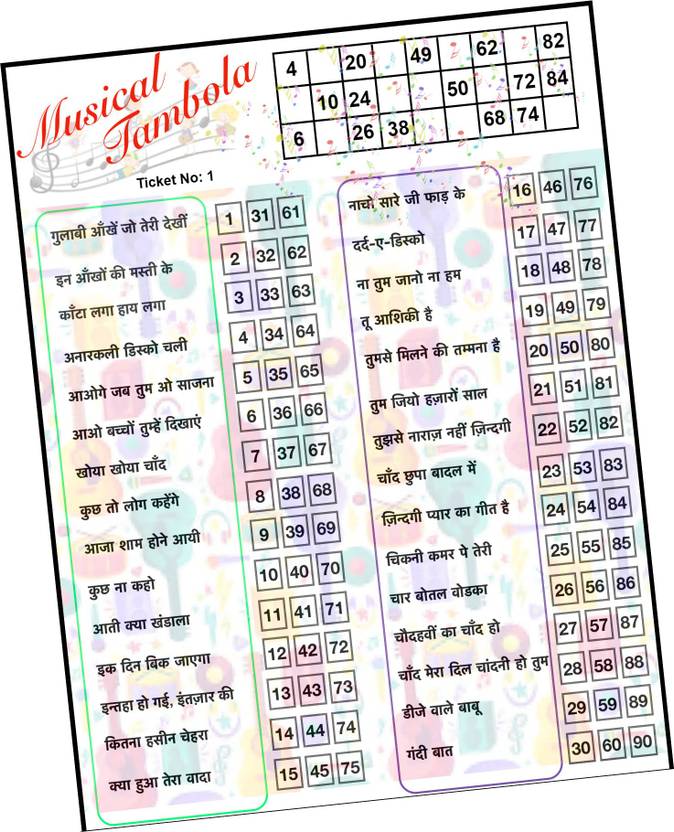 Musical
Tambola
Ticket No: 1
4 20 49 62 82
10 24 50 72 84
6 26 38 68 74
गुलाबी आँखें जो तेरी देखीं 1 31 61
इन आँखों की मस्ती के 2 32 62
काँटा लगा हाय लगा 3 33 63
अनारकली डिस्को चली 4 34 64
आओगे जब तुम ओ साजना 5 35 65
आओ बच्चों तुम्हें दिखाएं 6 36 66
खोया खोया चाँद 7 37 67
कुछ तो लोग कहेंगे 8 38 68
आजा शाम होने आयी 9 39 69
कुछ ना कहो 10 40 70
आती क्या खंडाला 11 41 71
इक दिन बिक जाएगा 12 42 72
इन्तहा हो गई, इंतज़ार की 13 43 73
कितना हसीन चेहरा 14 44 74
क्या हुआ तेरा वादा 15 45 75
नाचो सारे जी फाड़ के 16 46 76
दर्द-ए-डिस्को 17 47 77
ना तुम जानो ना हम 18 48 78
तू आशिकी है 19 49 79
तुमसे मिलने की तम्मना है 20 50 80
तुम जियो हज़ारों साल 21 51 81
तुझसे नाराज़ नहीं ज़िन्दगी 22 52 82
चाँद छुपा बादल में 23 53 83
ज़िन्दगी प्यार का गीत है 24 54 84
चिकनी कमर पे तेरी 25 55 85
चार बोतल वोडका 26 56 86
चोदहवीं का चाँद हो 27 57 87
चाँद मेरा दिल चांदनी हो तुम 28 58 88
डीजे वाले बाबू 29 59 89
गंदी बात 30 60 90